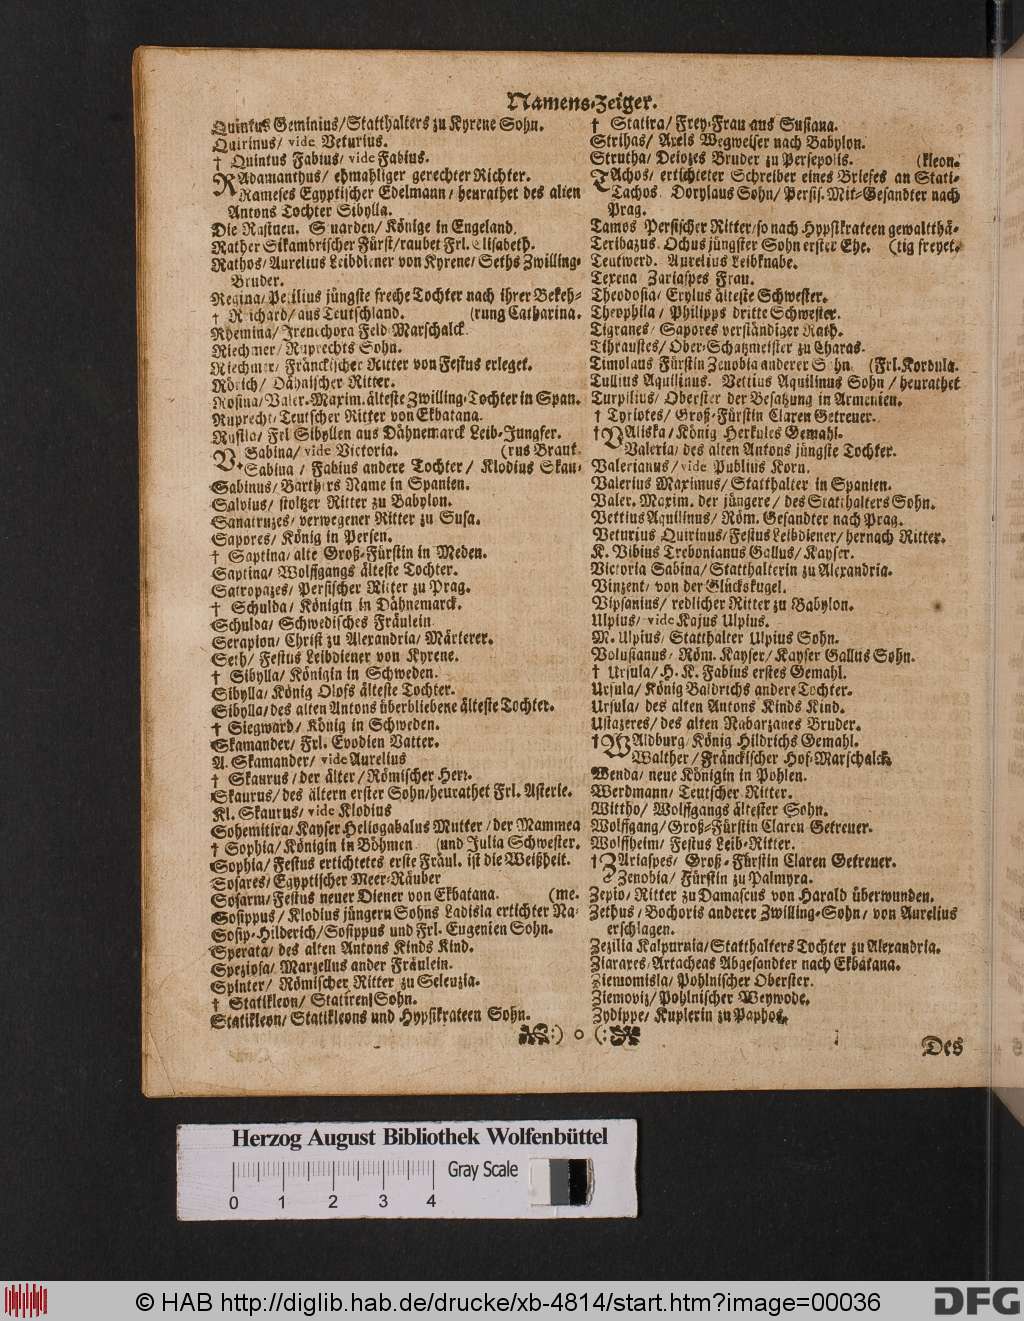 Namens-Zeiger.
Quintus Geminius/Statthalters zu Kyrene Sohn.
Quirinus/ vide Veturius.
† Quintus Fabius/ vide Fabius.
RAdamanthus/ ehmahliger gerechter Richter.
Rameses Egyptischer Edelmann/ heurathet des alten
Antons Tochter Sibylla.
Die Rasinen. Suarden/ Könige in Engeland.
Rather Sikambrischer Fürst/raubet Frl. Elisabeth.
Rathos/Aurelius Leibdiener von Kyrene/Seths Zwilling-
Bruder.
Regina/ Petilius jüngste freche Tochter nach ihrer Bekeh-
† Richard/aus Teutschland. (rung Catharina.
Rhemina/ Irenechora Feld-Marschalck
Riechmer/ Ruprechts Sohn.
Riechmer/ Fränckischer Ritter von Festus erleget.
Rörich/ Dähnischer Ritter.
Rosina/Valer-Maxim. älteste Zwilling-Tochter in Span.
Ruprecht/Teutscher Ritter von Ekbatana.
Rusila/ Frl Sibyllen aus Dähnemarck Leib-Jungfer.
Sabina/ vide Victoria. (rus Braut.
Sabina / Fabius andere Tochter / Klodius Skau-
Sabinus/ Barthers Name in Spanien.
Salvius/ stoltzer Ritter zu Babylon.
Sanatruzes/ verwegener Ritter zu Susa.
Sapores/ König in Persen.
† Saptina/ alte Groß-Fürstin in Meden.
Saptina/ Wolffgangs älteste Tochter.
Satropazes/ Persischer Ritter zu Prag.
† Schulda/ Königin in Dähnemarck.
Schulda/ Schwedisches Fräulein
Serapion/ Christ zu Alexandria/ Märterer.
Seth/ Festus Leibdiener von Kyrene.
† Sibylla/ Königin in Schweden.
Sibylla/ König Olofs älteste Tochter.
Sibylla/des alten Antons überbliebene älteste Tochter.
† Siegward/ König in Schweden.
Skamander/ Frl. Evodien Vatter.
A. Skamander/ vide Aurelius
† Skaurus/der älter/Römischer Herr.
Skaurus/des ältern erster Sohn/heurathet Frl. Asterie.
Kl. Skaurus/ vide Klodius
Sohemitira/Kayser Heliogabalus Mutter/der Mammea
† Sophia/Königin in Böhmen (und Julia Schwester.
Sophia/ Festus ertichtetes erste Fräul. ist die Weißheit.
Sosares/Egyptischer Meer-Räuber
Sosarm/Festus neuer Diener von Ekbatana. (me.
Sosippus/ Klodius jüngern Sohns Ladisla ertichter Na-
Sosip-Hilderich/Sosippus und Frl. Eugenien Sohn.
Sperata/ des alten Antons Kinds Kind.
Speziosa/ Marzellus ander Fräulein.
Spinter/ Römischer Ritter zu Seleuzia.
† Statikleon/ Statiren Sohn.
Statikleon/ Statikleons und Hypsikrateen Sohn.
† Statira/ Frey-Frau aus Susiana.
Strihas/ Axels Wegweiser nach Babylon.
Strutha/ Deiozes Bruder zu Persepolis. (kleon.
TAchos/ ertichteter Schreiber eines Briefes an Stati-
Tachos Dorylaus Sohn/ Persis. Mit-Gesandter nach
Prag.
Tamos Persischer Ritter/so nach Hypsikrateen gewaltthä-
Teribazus. Ochus jüngster Sohn erster Ehe. (tig freyet.
Teutwerd. Aurelius Leibknabe.
Texena Zariaspes Frau.
Theodosia/ Erylus älteste Schwester.
Theophila / Philipps dritte Schwester.
Tigranes/ Sapores verständiger Rath.
Tihraustes/ Ober-Schatzmeister zu Charas.
Timolaus Fürstin Zenobia anderer Sohn (Frl. Kordula.
Tullius Aquilinus. Vettius Aquilinus Sohn / heurathet
Turpilius/ Oberster der Besatzung in Armenien.
† Tyriotes/ Groß-Fürstin Claren Getreuer.
† VAliska/König Herkules Gemahl.
Valeria/ des alten Antons jüngste Tochter.
Valerianus/ vide Publius Korn.
Valerius Maximus/ Statthalter in Spanien.
Valer. Maxim. der jüngere/ des Statthalters Sohn.
Vettius Aquilinus/ Röm. Gesandter nach Prag.
Veturius Quirinus/Festus Leibdiener/hernach Ritter.
K. Vibius Trebonianus Gallus/ Kayser.
Victoria Sabina/Statthalterin zu Alexandria.
Vinzent/ von der Glückskugel.
Vipsanius/ redlicher Ritter zu Babylon.
Ulpius/ vide Kajus Ulpius.
M. Ulpius/ Statthalter Ulpius Sohn.
Volusianus/ Röm. Kayser/ Kayser Gallus Sohn.
† Ursula/ H. K. Fabius erstes Gemahl.
Ursula/ König Baldrichs andere Tochter.
Ursula/ des alten Antons Kinds Kind.
Ustazeres/ des alten Nabarzanes Bruder.
† WAldburg/König Hildrichs Gemahl.
Walther / Fränckischer Hof-Marschalck
Wenda/ neue Königin in Pohlen.
Werdmann/ Teutscher Ritter.
Wittho/ Wolffgangs ältester Sohn.
Wolffgang/Groß-Fürstin Claren Getreuer.
Wolffheim/ Festus Leib-Ritter.
† ZAriaspes/ Groß-Fürstin Claren Getreuer.
Zenobia/ Fürstin zu Palmyra.
Zepio/ Ritter zu Damascus von Harald überwunden.
Zethus/Bochoris anderer Zwilling-Sohn/ von Aurelius
erschlagen.
Zezilia Kalpurnia/Statthalters Tochter zu Alexandria.
Ziaraxes/Artacheas Abgesandter nach Ekbatana.
Ziemomisla/Pohlnischer Oberster.
Ziemoviz/Pohlnischer Weywode.
Zydippe/ Kuplerin zu Paphos.
:) o (:
Des
Herzog August Bibliothek Wolfenbüttel
Gray Scale
0 1 2 3 4
© HAB http://diglib.hab.de/drucke/xb-4814/start.htm?image=00036
DFG